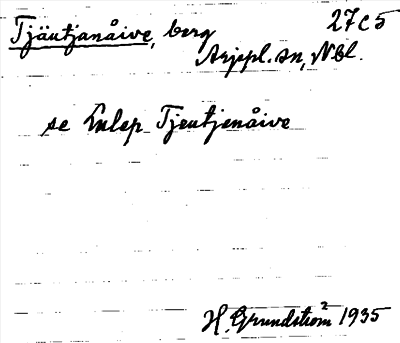 Tjäutjanåive, berg 27C5
Arjepl. sn, Nbl.
se Enlep Tjeutjenåive
H. Grundström 1935